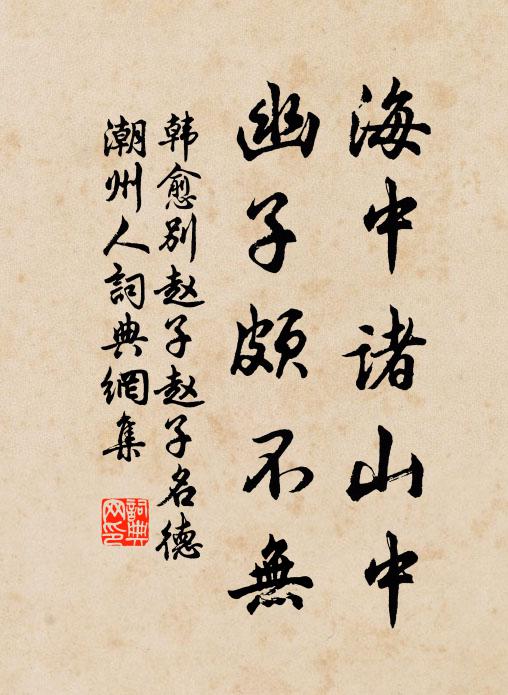 海中诸山中
幽子颇不無
韩愈别赵子赵子名德
潮州人詞典網集
詞典
网印